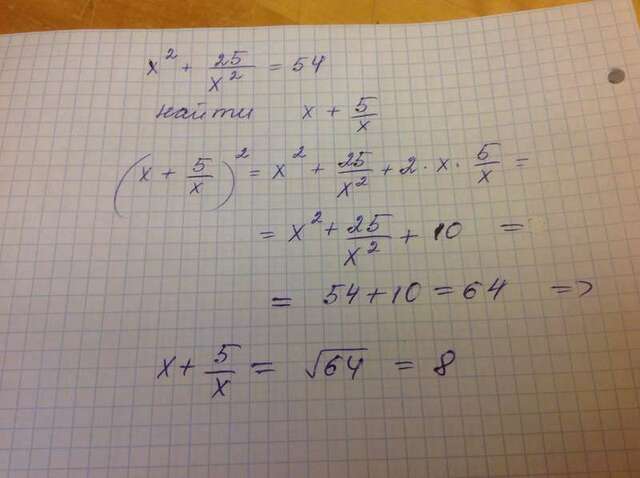 x² + 25/x² = 54
найти x + 5/x
(x + 5/x)² = x² + 25/x² + 2 · x · 5/x =
= x² + 25/x² + 10 =
= 54 + 10 = 64 =>
x + 5/x = √64 = 8